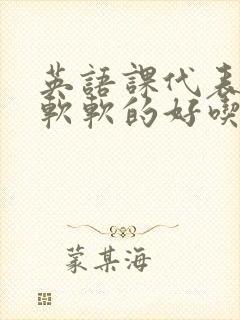 英語課代表
軟軟的好喫
蒙某海